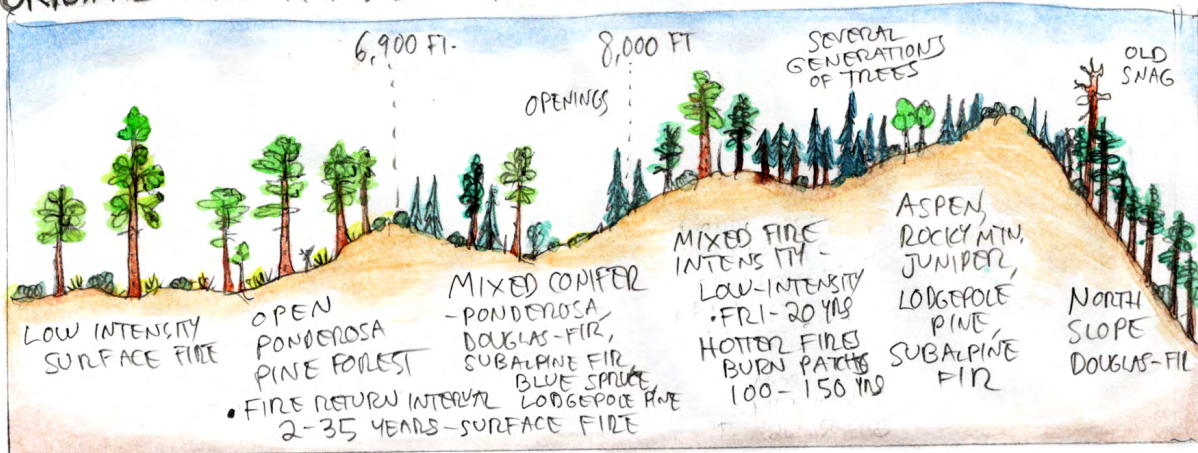 6,900 FT.
8,000 FT
OPENINGS
SEVERAL
GENERATIONS
OF TREES
OLD
SNAG
LOW INTENSITY
SURFACE FIRE
OPEN
PONDEROSA
PINE FOREST
• FIRE RETURN INTERVAL
2-35 YEARS-SURFACE FIRE
MIXED CONIFER
-PONDEROSA,
DOUGLAS-FIR,
SUBALPINE FIR,
BLUE SPRUCE,
LODGEPOLE PINE
MIXED FIRE
INTENSITY -
LOW-INTENSITY
• FRI-20 YRS
HOTTER FIRES
BURN PATCHS
100-150 YRS
ASPEN,
ROCKY MTN.
JUNIPER,
LODGEPOLE
PINE,
SUBALPINE
FIR
NORTH
SLOPE
DOUGLAS-FIR